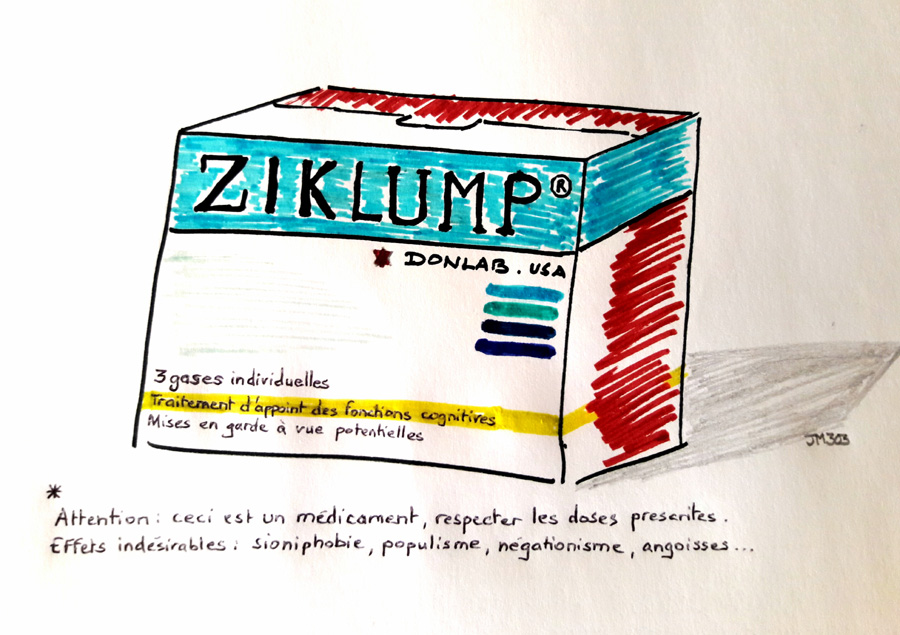 ZIKLUMP®
DONLAB. USA
3 gases individuelles
Traitement d'appoint des fonctions cognitives
Mises en garde à vue potentielles
JM303
*
Attention : ceci est un médicament, respecter les doses prescrites.
Effets indésirables : sioniphobie, populisme, négationisme, angoisses...